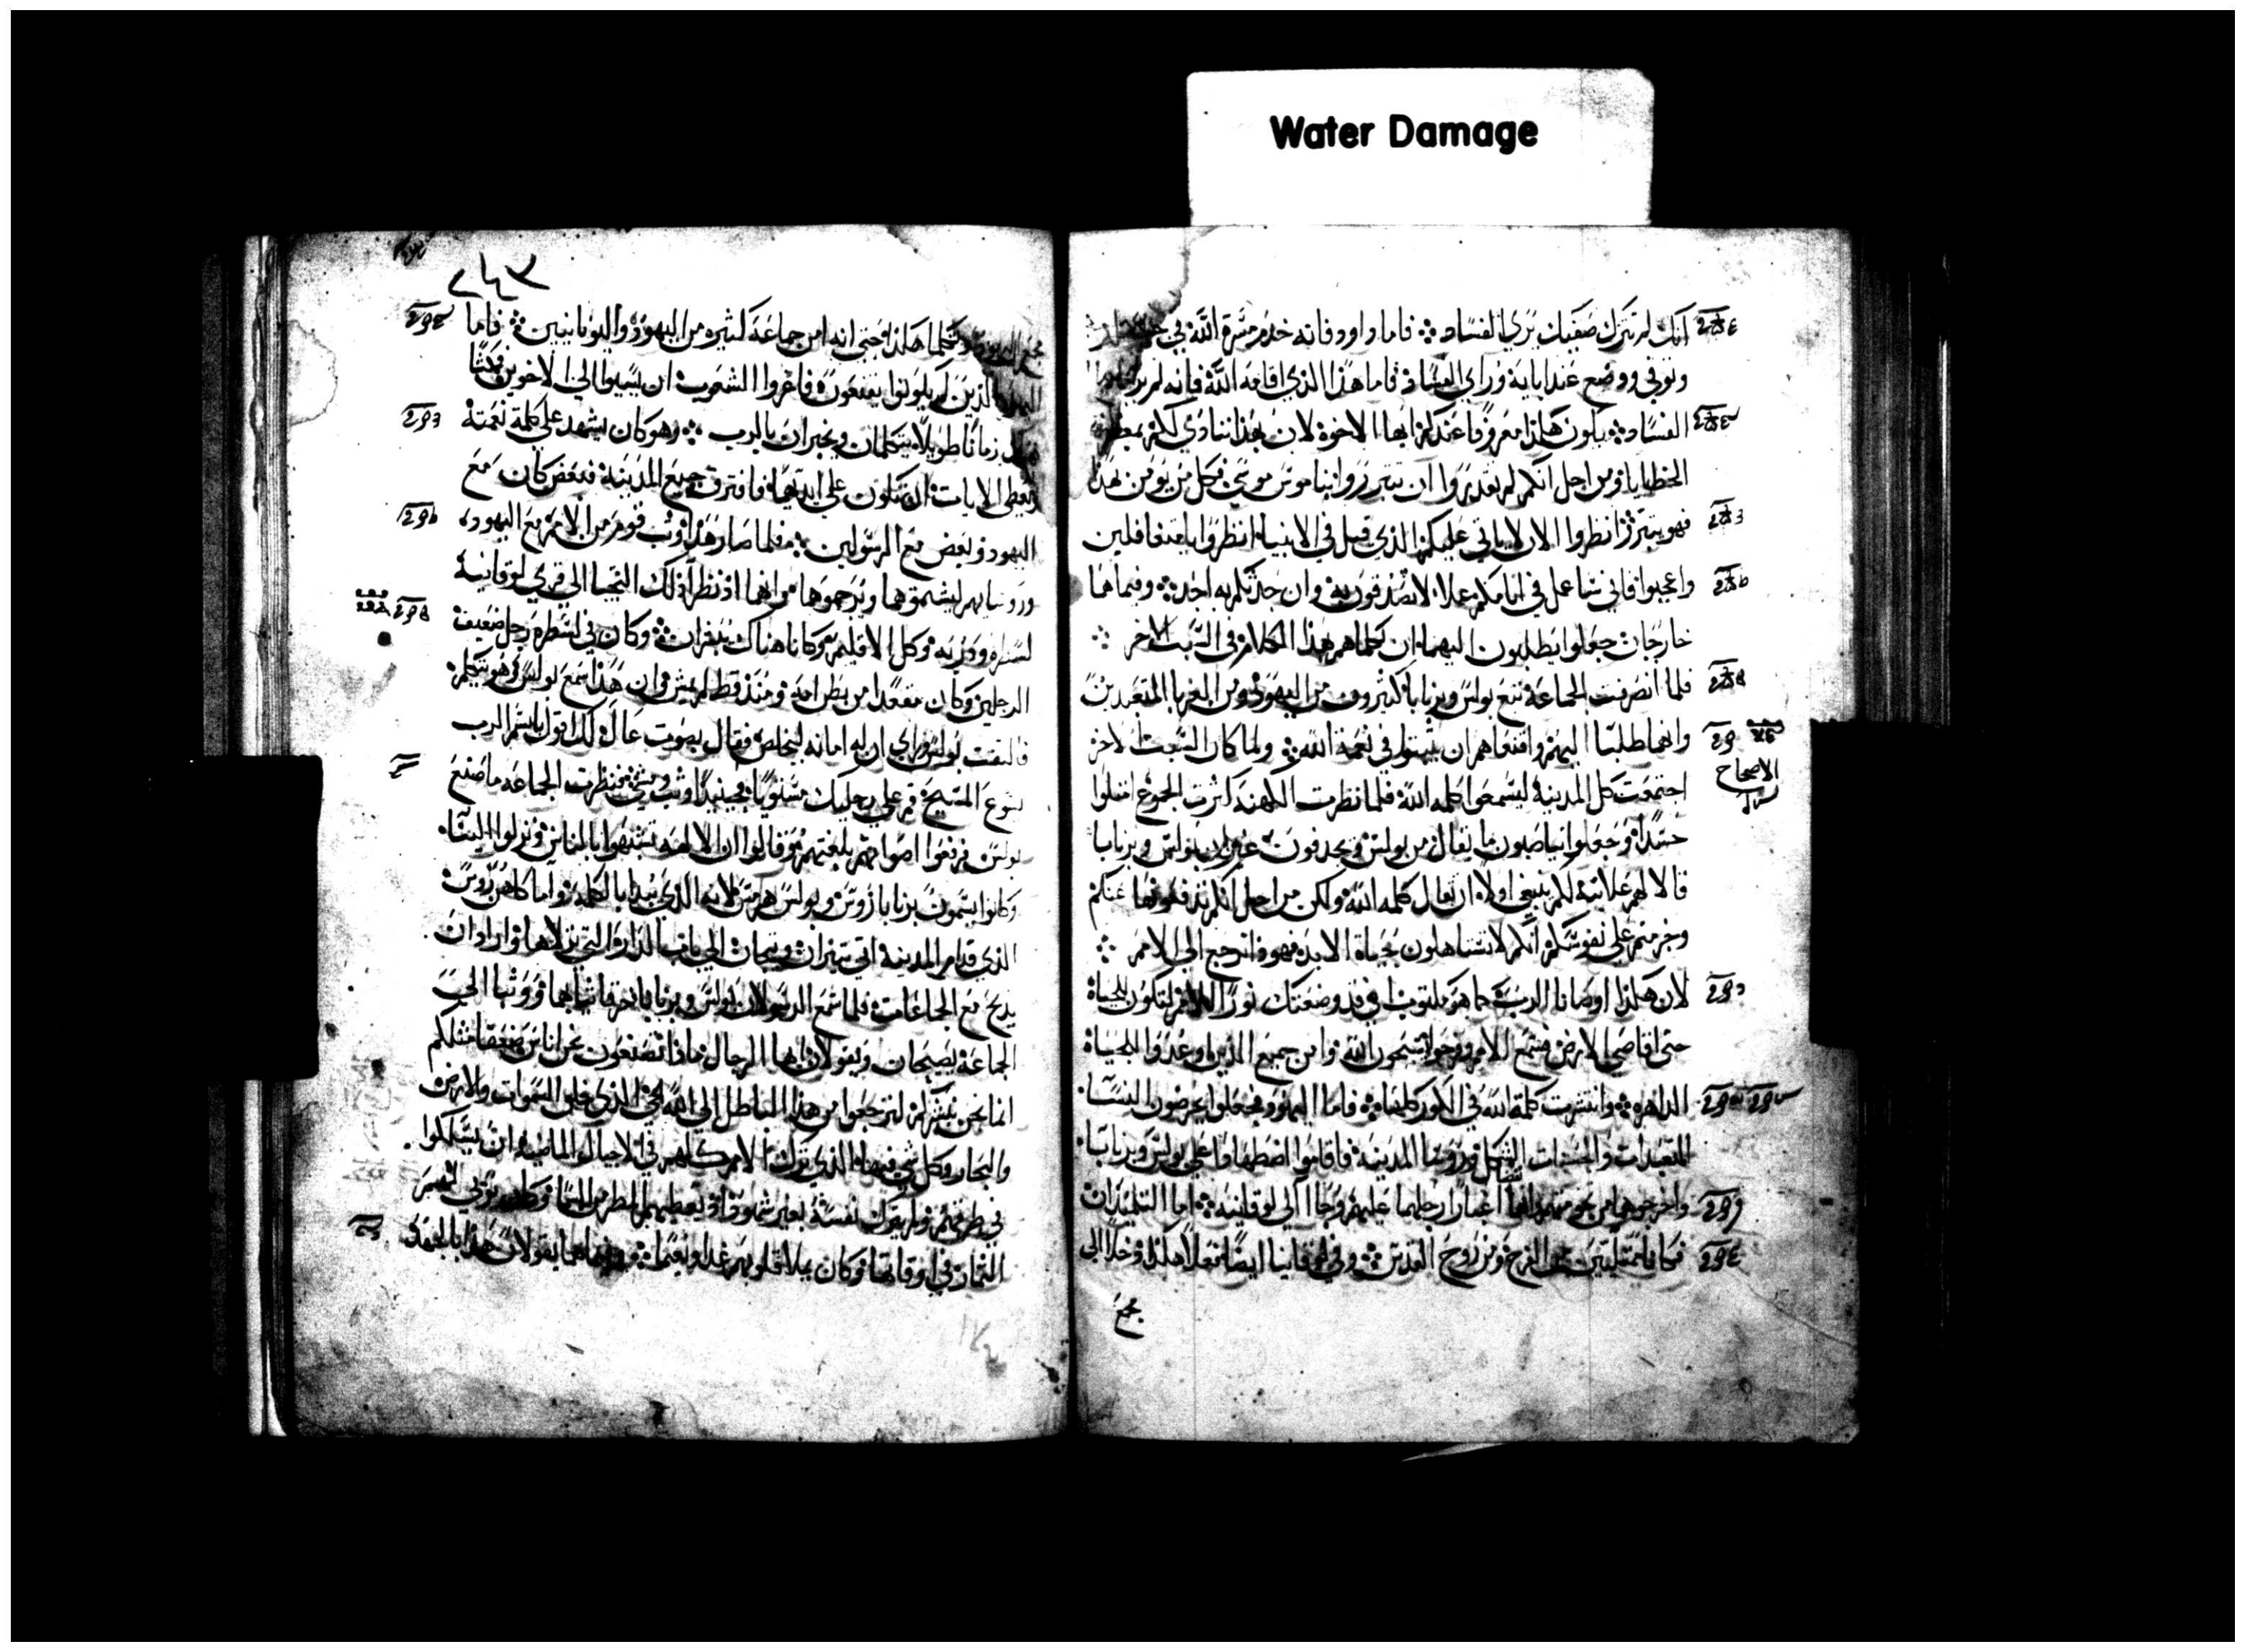 Water Damage
انك لم تترك صفيك يرى الفساد ۞ فاما داوود فانه خدم مسرة الله في
وتوفي ووضع عند ابايه وراى الفساد فاما هذا الذي اقامه الله فانه لم ير
الفساد ۞ يكون هكذا معروفا عندكم ايها الاخوة لان بهذا ننادي لكم بمغفرة
الخطايا ومن اجل انكم لم تقدروا ان تتبرروا بناموس موسى فكل من يومن بهذا
فهو يتبرر انظروا الان لا ياتي عليكم الذي قيل في الانبياء انظروا يا متغافلين
واعجبوا فاني ساعمل في ايامكم عملا لا تصدقون به وان حدثكم به احد ۞ وفيما هما
خارجان جعلوا يطلبون اليهما ان يكلماهم بهذا الكلام في السبت الاخر ۞
فلما انصرفت الجماعة تبع بولس وبرنابا كثيرون من اليهود ومن الغربا المتعبدين
وانهما طلبا اليهم واقنعاهم ان يثبتوا في نعمة الله ۞ ولما كان السبت الاخر
الاصحاح
اجتمعت كل المدينة ليسمعوا كلمه الله فلما نظرت الكهنه كثرت الجموع امتلوا
حسدا وجعلوا يناصبون ما يقال من بولس ويجدفون بولس وبرنابا
قالا لهم علانية لكم ينبغي اولا ان تقال كلمه الله ولكن من اجل انكم تدفعونها عنكم
وخرمتم على نفوسكم انكم لا تستاهلون بحياة الابد فهوذا نرجع الى الامم ۞
لان هكذا اوصانا الرب كما هو مكتوب اني قد وضعتك نورا للامم لتكون للحياة
حتى اقاصي الارض فسمع الامم وفرحوا يسبحون الله وامن جميع الذين وعدوا للحياة
الداهره ۞ وانتشرت كلمة الله في الكور كلها ۞ فاما اليهود فجعلوا يحرضون النسا
المتعبدات والحسنات الشكل وروسا المدينة فاقاموا اضطهادا على بولس وبرنابا
واخرجوهما من تخومهم غبار ارجلهما عليهم وجاا الى لوقانيه ۞ اما التلميذان
فكانا ممتليين من الفرح ومن روح القدس ۞ وفي لوقانيا ايضا فعلا هكذا دخلا الى
مجمع
٢٤٣
مجمع اليهود وتكلما هكذا حتى انه امن جماعة كثيره من اليهود واليونانيين ۞ فاما
اليهود الذين لم يكونوا يقنعون فاغروا الشعوب ان يسيوا الى الاخوين فمكثا
زمانا طويلا يتكلمان ويخبران بالرب ۞ وهو كان يشهد على كلمة نعمته
ويعطي الايات ان تكون على ايديهما فافترق جميع المدينه فبعض كان مع
اليهود وبعض مع الرسولين ۞ فلما صار هذا وثب قوم من الامم مع اليهود
وروسايهم ليشتموهما ويرجموهما وانهما اذ نظرا ذلك التجيا الى قرى لوقانيه
لسطره ودربه وكل الاقليم وكانا هناك يبشران ۞ وكان في لسطره رجل ضعيف
الرجلين وكان مقعدا من بطن امه ومنذ قط لم يمش وان هذا سمع بولس وهو يتكلم
فالتفت بولس وراى ان له امانه ليخلص فقال بصوت عال لك اقول باسم الرب
يسوع المسيح قم على رجليك مستويا فحينيذ وثب ومشى فنظرت الجماعه ما صنع
بولس فرفعوا اصواتهم بلغتهم وقالوا ان الالهة تشبهوا بالناس ونزلوا الينا
وكانوا يسمون برنابا زوس وبولس هرمس لانه الذي يبدا بالكلمه واما كاهن زوس
الذي قدام المدينه اتى بثيران وتيجان الى باب الدار التي نزلاها واراد ان
يذبح مع الجماعات فلما سمع الرسولان بولس وبرنابا خرقا ثيابهما ووثبا الى
الجماعة يصيحان ويقولان ايها الرجال ماذا تصنعون نحن اناس ضعفا مثلكم
انما نحن نبشركم لترجعوا من هذا الباطل الى الله الحي الذي خلق السموات والارض
والبحار وكل شي فيها الذي ترك الامم كلهم في الاجيال الماضيه ان يسلكوا
في طرقهم ولم يترك نفسه بغير شهوده اذ يعطيهم المطر من السما وكان يوتي لهم
الثمار في اوقاتها وكان يملا قلوبهم غدا ونعيما ۞ وفيما هما يقولان هذا بالجهد